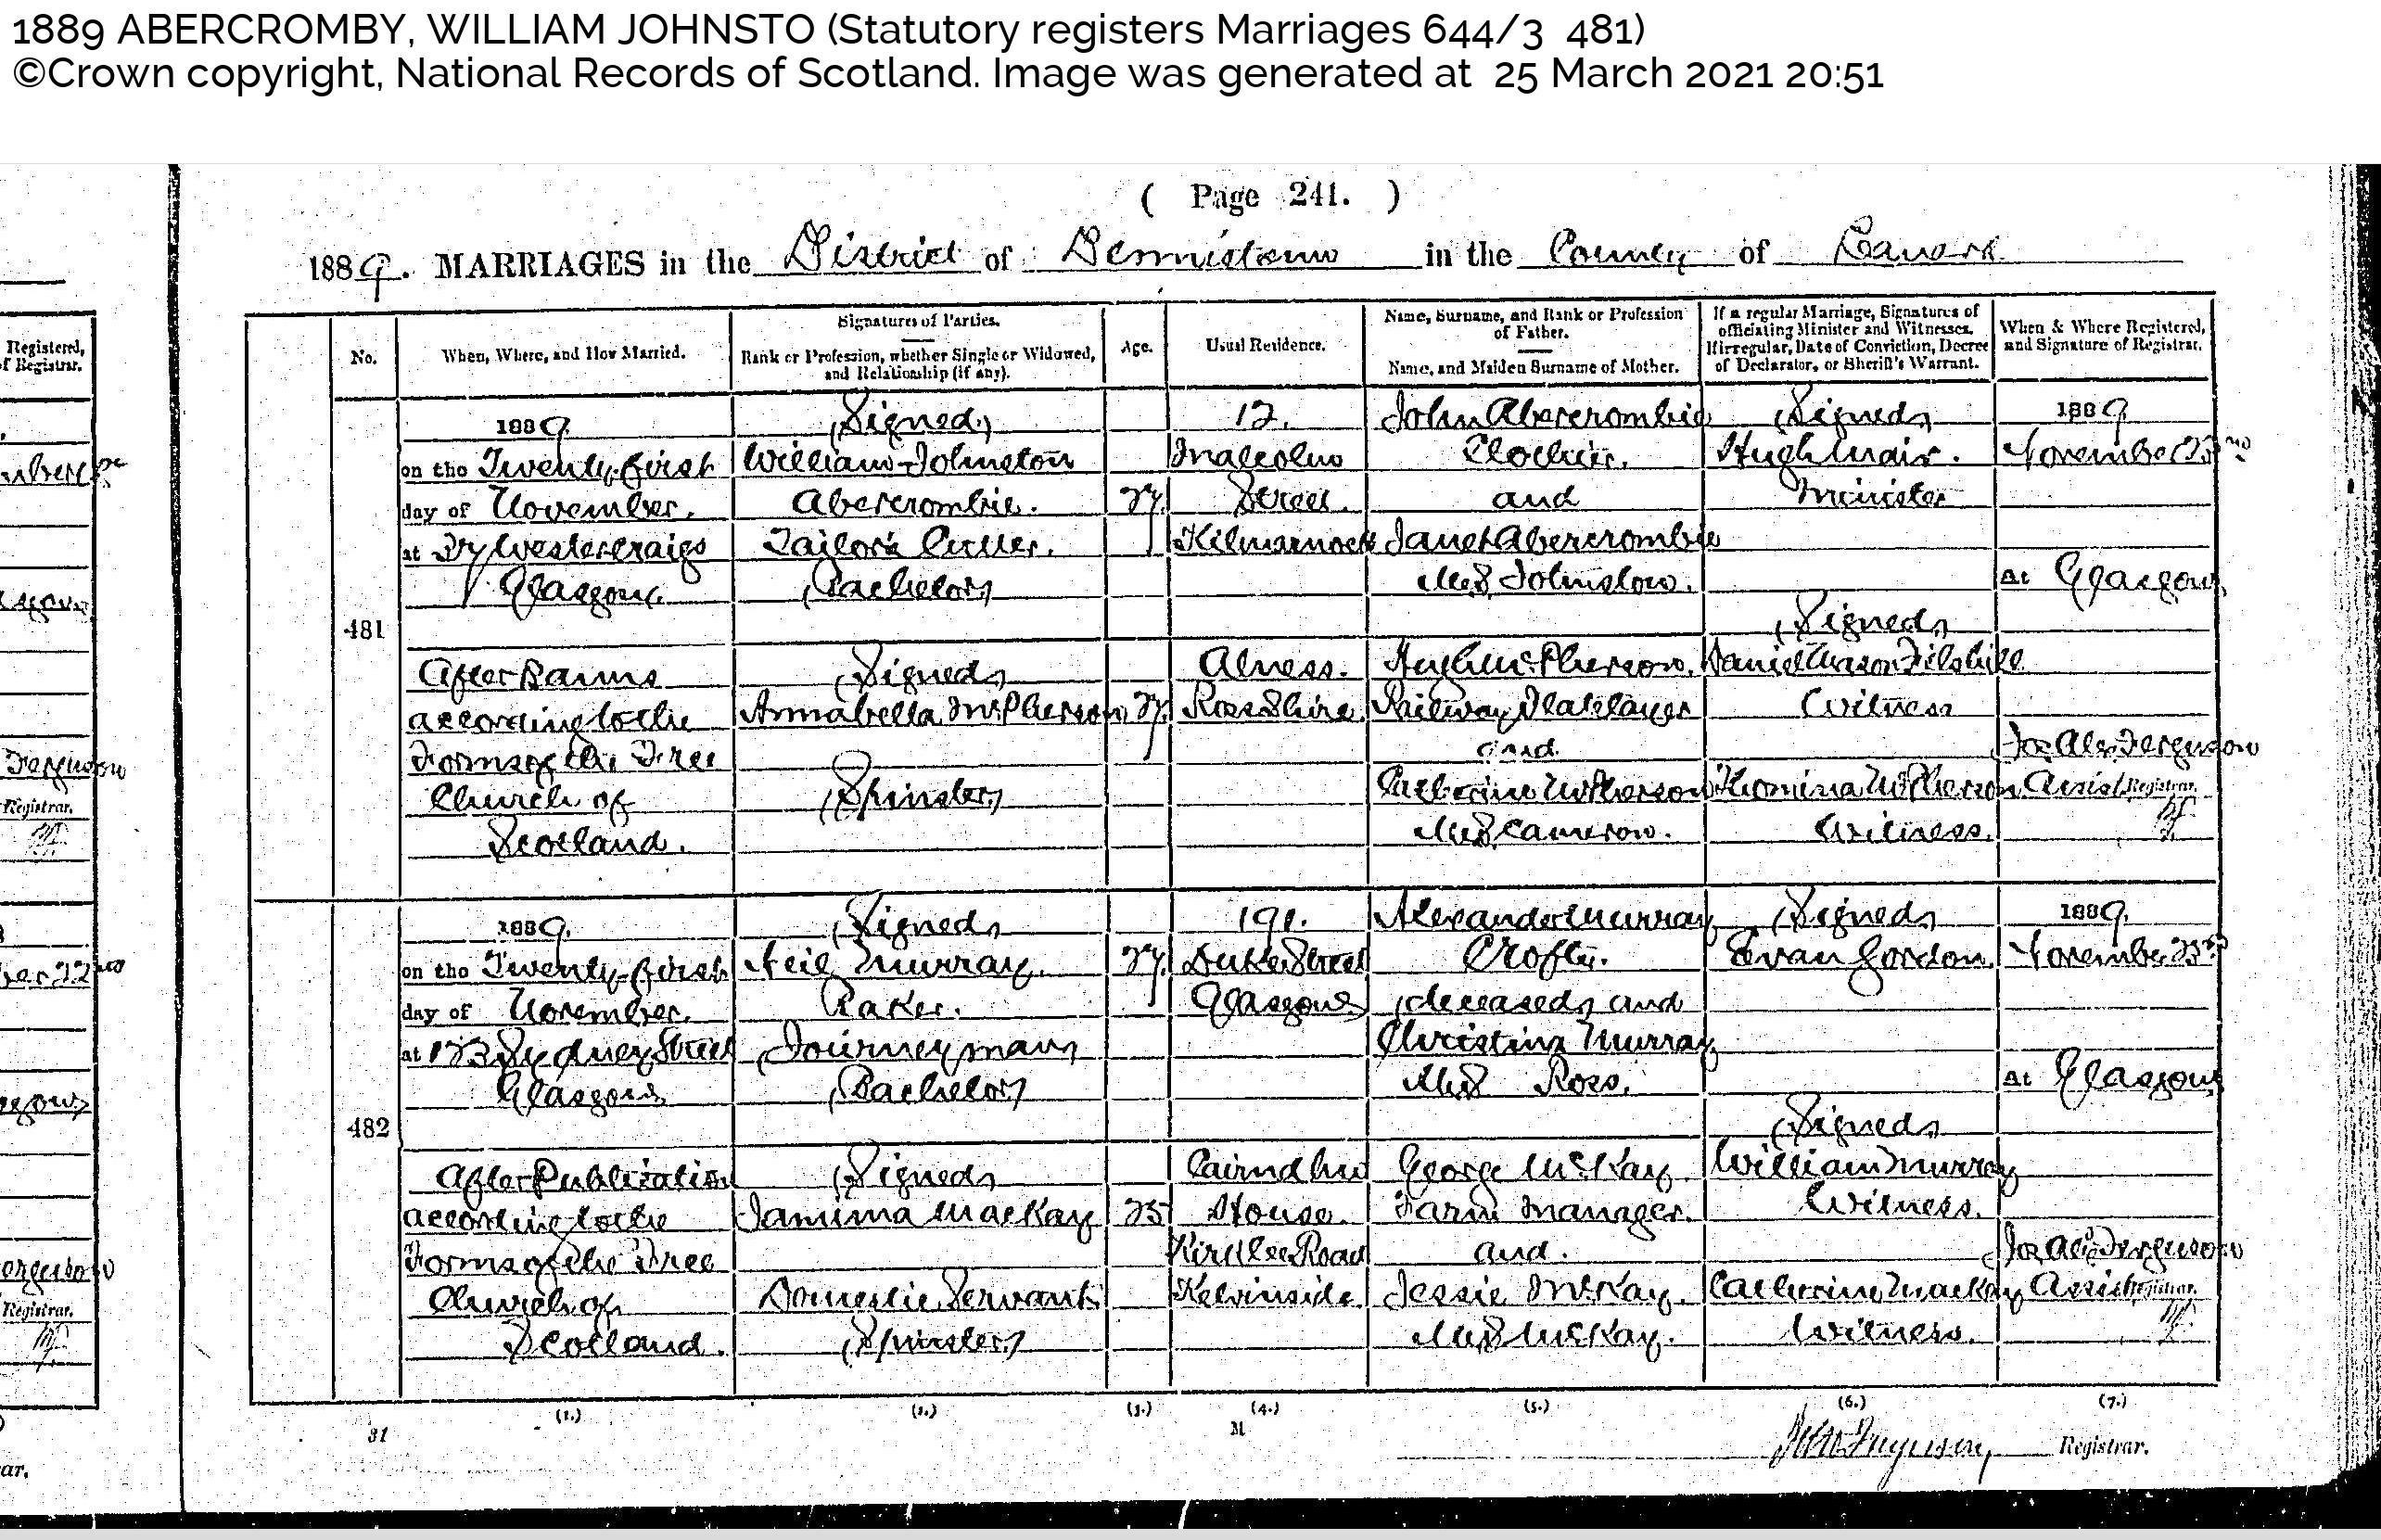 1889 ABERCROMBY, WILLIAM JOHNSTO (Statutory registers Marriages 644/3 481)
©Crown copyright, National Records of Scotland. Image was generated at 25 March 2021 20:51
( Page 241. )
1889. MARRIAGES in the District of Dennistoun in the County of Lanark
Registered,
of Registrar.
No.
When, Where, and How Married.
Signatures of Parties.
Rank or Profession, whether Single or Widowed,
and Relationship (if any).
Age.
Usual Residence.
Name, Surname, and Rank or Profession
of Father.
Name, and Maiden Surname of Mother.
If a regular Marriage, Signatures of
officiating Minister and Witnesses.
If irregular, Date of Conviction, Decree
of Declarator, or Sheriff's Warrant.
When & Where Registered,
and Signature of Registrar.
481
1889.
on the Twenty-first
day of November.
at 27 Westercraigs
Glasgow.
After Banns
according to the
Forms of the Free
Church of
Scotland.
(Signed)
William Johnston
Abercrombie.
Tailor's Cutter.
(Bachelor)
(Signed)
Annabella McPherson
(Spinster)
27.
27.
12.
Malcolm
Street.
Kilmarnock
Alness.
Ross Shire
John Abercrombie
Clothier.
and
Janet Abercrombie
M.S. Johnston.
Hugh McPherson.
Railway Platelayer
and
Catherine McPherson
M.S. Cameron.
(Signed)
Hugh Mair.
Minister
(Signed)
Daniel Mason Filshill
Witness
Thomina McPherson
Witness.
1889
November 23rd
At Glasgow
Jas Alex Ferguson
Assist Registrar.
482
1889.
on the Twenty-first
day of November.
at 123 Sydney Street
Glasgow
After Publication
according to the
Forms of the Free
Church of
Scotland.
(Signed)
Neil Murray.
Baker.
(Journeyman)
(Bachelor)
(Signed)
Jamima MacKay
Domestic Servant
(Spinster)
27.
25
191.
Duke Street
Glasgow
Cairndhu
House.
Kirklee Road
Kelvinside.
Alexander Murray
Crofter.
(deceased) and
Christina Murray
M.S. Ross.
George McKay.
Farm Manager.
and.
Jessie McKay.
M.S. McKay.
(Signed)
Evan Gordon.
(Signed)
William Murray
Witness.
Catherine MacKay
Witness.
1889.
November 23rd
At Glasgow
Jas Alex Ferguson
Assist Registrar.
(1.) (2.) (3.) (4.) (5.) (6.) (7.)
31
M
Registrar.